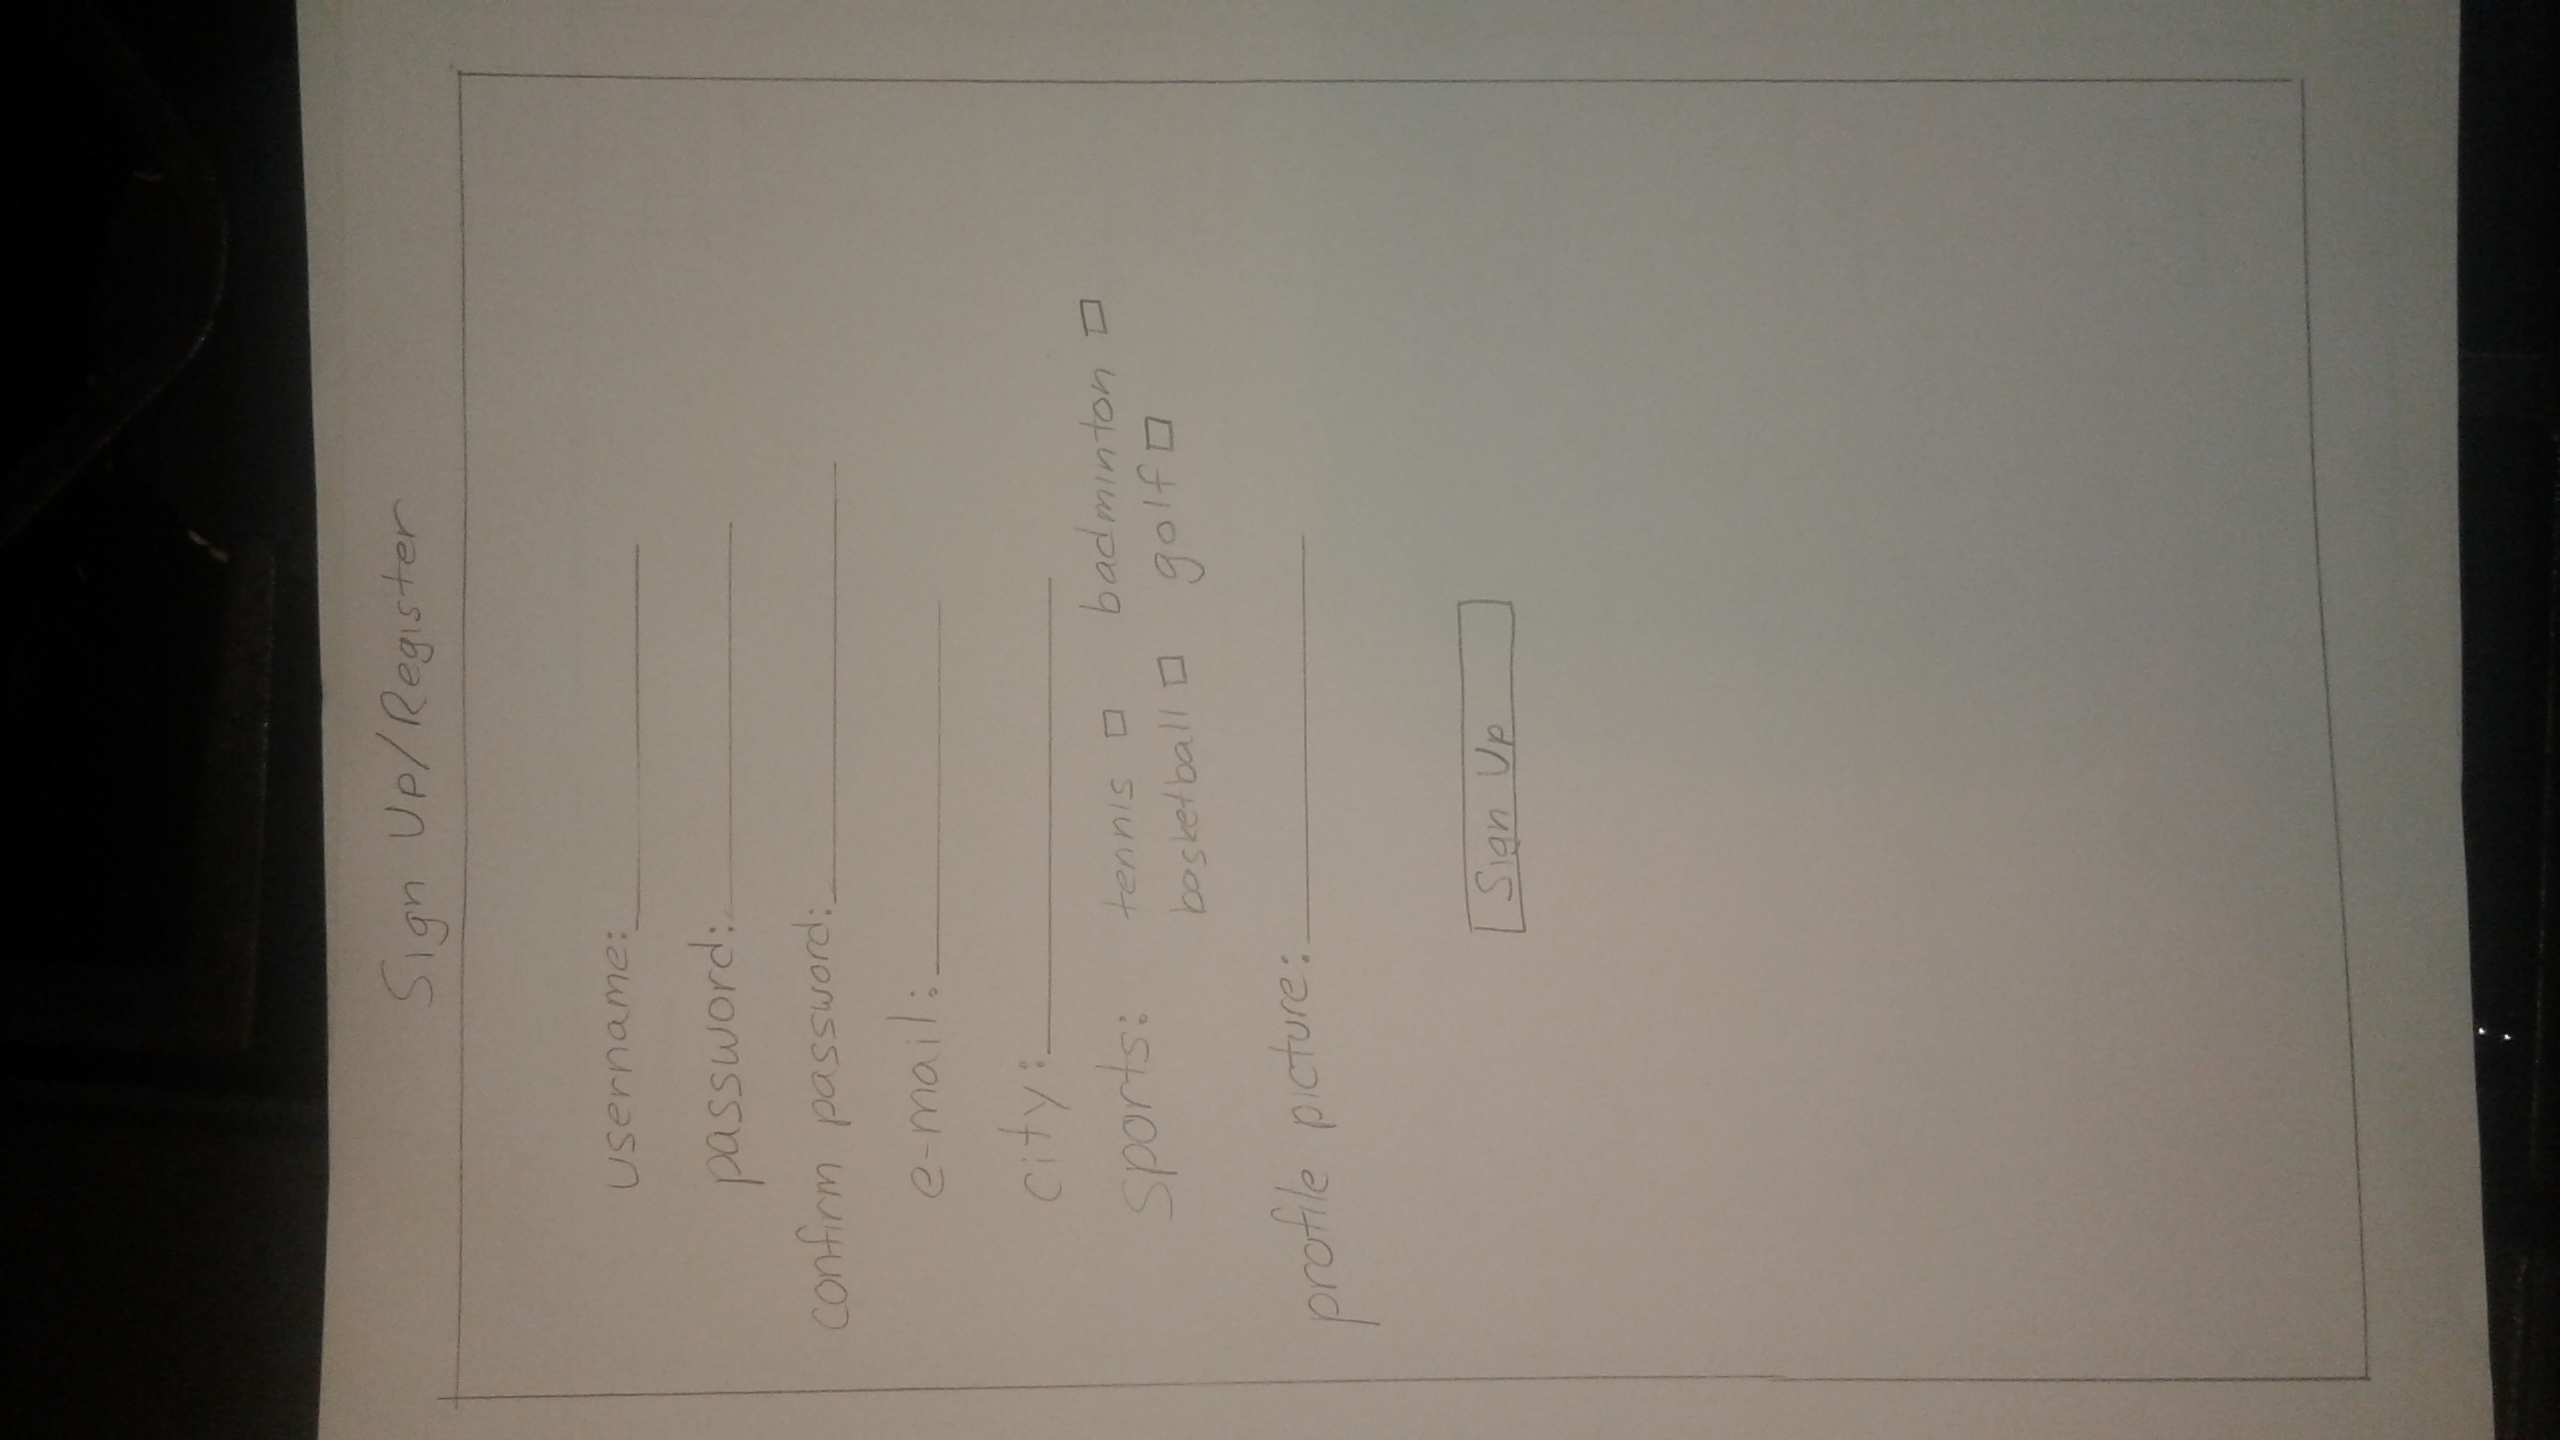 Sign Up/Register
username:
password:
confirm password:
e-mail:
city:
sports: tennis badminton
basketball golf
profile picture:
Sign Up